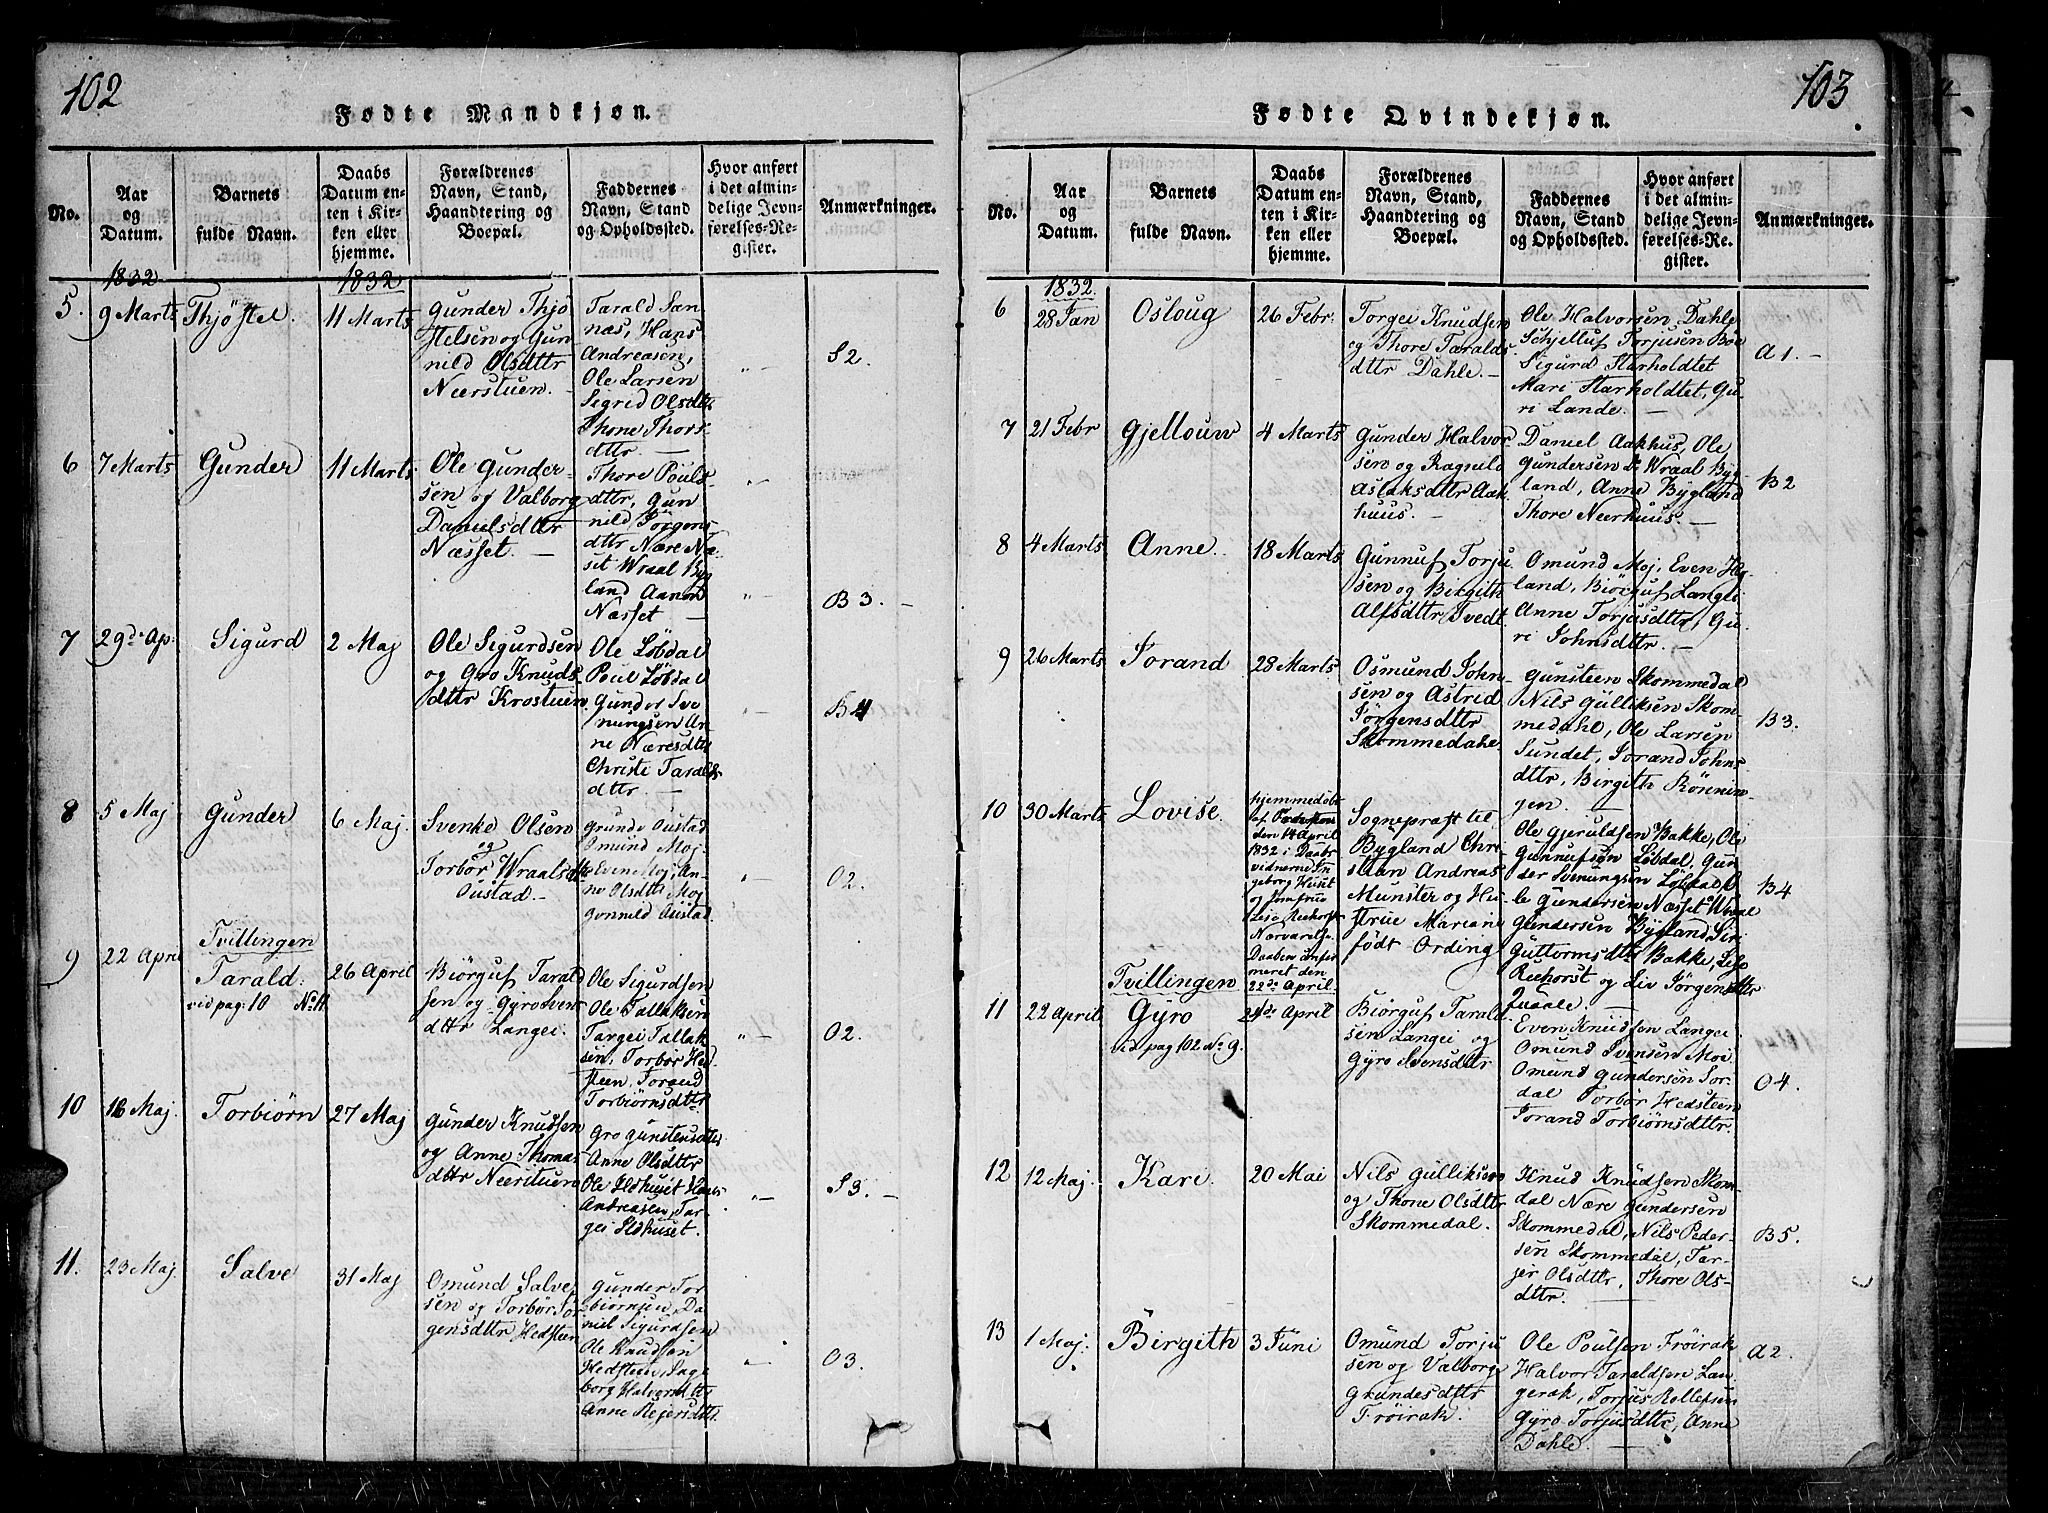 102
Fødte Mandkjøn.
No.
Aar og Datum.
Barnets fulde Navn.
Daabs Datum enten i Kirken eller hjemme.
Forældrenes Navn, Stand, Haandtering og Boepæl.
Faddernes Navn, Stand og Opholdssted.
Hvor anført i det almindelige Jevnførelses-Register.
Anmærkninger.
1832
1832
5.
9 Marts
Thjöstel.
11 Marts
Gunder Thjö
stelsen og Gun
nild Olsdttr
Neerstuen.
Tarald San
næs, Hans
Andreasen,
Ole Larsen
Sigrid Olsdttr
Thone Thors
dttr. —
S2.
6
7 Marts
Gunder
11 Marts
Ole Gunder
sen og Valborg
Danielsdttr
Næsset. —
Thore Pouls
dttr, Gun
nild Jörgens
dttr Nære Næ
set Wraal Byg
land Aanon
Næsset —
B3. —
7
29de Ap:
Sigurd
2 Maj
Ole Sigurdsen
og Gro Knuds
dttr Krostuen
Ole Löbdal
Poul Löbdal
Gunder Sve
nungsen An
ne Næresdttr
Christi Taralds
dttr. —
B4
8
5 Maj
Gunder
6 Maj.
Svenke Olsen
og
Torbor Wraalsdttr
Oustad. —
Grunde Oustad
Omund Moj
Even Moj, An
ne Olsdttr Moj
Gonnild Oustad.
O2.
9
22 April
Tvillingen
Tarald:
vid pag: 10 No 11
26 April
Biörguf Tarald
sen og Gyro Sven
dttr Langei.
Ole Sigurdsen
Ole Tallaksen
Targei Tallak
sen, Torbor Hed
steen, Torand
Torbiörnsdttr
O2.
10
16 Maj.
Torbiörn
27 Maj
Gunder Knudsen
og Anne Thomas
dttr Neerstuen
Gro Gunstensdttr
Anne Olsdttr
Ole Ildhuset Hans
Andreasen, Tar
gei Ildhuset.
S3. —
11.
23 Maj.
Salve
31 Maj
Omund Salve
sen og Torbor Jör
gensdttr Hedsteen
Gunder Tor
biörnsen, Da
niel Sigurdsen
Ole Knudsen
Hedsteen, Inge
borg Halvorsdttr
Anne Rejersdttr
O3.
103
Fødte Qvindekjøn.
No.
Aar og Datum.
Barnets fulde Navn.
Daabs Datum enten i Kirken eller hjemme.
Forældrenes Navn, Stand, Haandtering og Boepæl.
Faddernes Navn, Stand og Opholdssted.
Hvor anført i det almindelige Jevnførelses-Register.
Anmærkninger.
1832.
6
28 Jan
Osloug
26 Febr.
Torgei Knudsen
og Thore Taralds
dttr Dahle. —
Ole Halvorsen Dahle
Schjelluf Torjusen Böe
Sigurd Starholdtet
Mari Starholdtet, Gu
ri Lande. —
A1. —
7
21 Febr
Gjellouw
4 Marts
Gunder Halvor
sen og Ragnild
Aslaksdttr Aak
huus. —
Daniel Aakhus, Ole
Gundersen do Wraal Byg
land, Anne Bygland
Thore Neerhuus. —
B2
8
4 Marts
Anne
18 Marts
Gunnuf Torju
sen og Birgith
Alfsdttr Tvedt
Omund Moj, Even He
land, Biörguf Langei
Anne Torjusdttr, Gu
ri Johnsdttr. —
9
26 Marts
Jorand
28 Marts
Osmund John
sen og Astrid
Jörgensdttr
Skommedahe
Gunsteen Skommedal
Nils Gulliksen Skom
medahl, Ole Larsen
Sundet, Jorand Johns
dttr, Birgith Rönnin
gen. —
B3.
10
30 Marts
Lovise.
hjemmedöbt
af Præsten
den 14 April
1832 i Daabs
vidnerne In
geborg Huset
og Jomfrue
Lise Reehorst
Nærværelse
Daaben confir
meret den
22de April.
Sognepræst til
Bygland Chri
stian Andreas
Munster og Hu
strue Mariane
født Ording
Ole Gjeruldsen Bakke, Ole
Gunnufsen Löbdal, Gun
der Svenungsen Löbdal O
le Gundersen Næsset Wraal
Gundersen Bygland, Siri
Guttormsdttr Bakke, Lise
Reehorst og Liv Jörgensdttr
Quaale —
B4
11
22 April
Tvillingen
Gyro
vid pag 102 No 9.
24de April
Biörguf Tarald
sen Langei og
Gyro Svensdttr
Even Knudsen Langei
Omund Svensen Moe
Omund Gundersen Sor
dal Torbor Hedsteen
Torand Torbiörnsdttr.
O4.
12
12 Maj.
Kari.
20 Mai
Nils Gulliksen
og Thone Olsdttr
Skommedal.
Knud Knudsen Skom
dal Nære Gundersen
Skommedal, Nils Peder
sen Skommedal, Tar
jer Olsdttr, Thore Ols
dttr. —
B5.
13
1 Maj.
Birgith
3 Juni
Omund Torju
sen og Valborg
Grundesdttr
Fröirak.
Ole Poulsen Fröirak
Halvor Taraldsen Lan
gerak, Torjus Rollefsen
Gyro Torjusdttr, Anne
Dahle. —
A2.